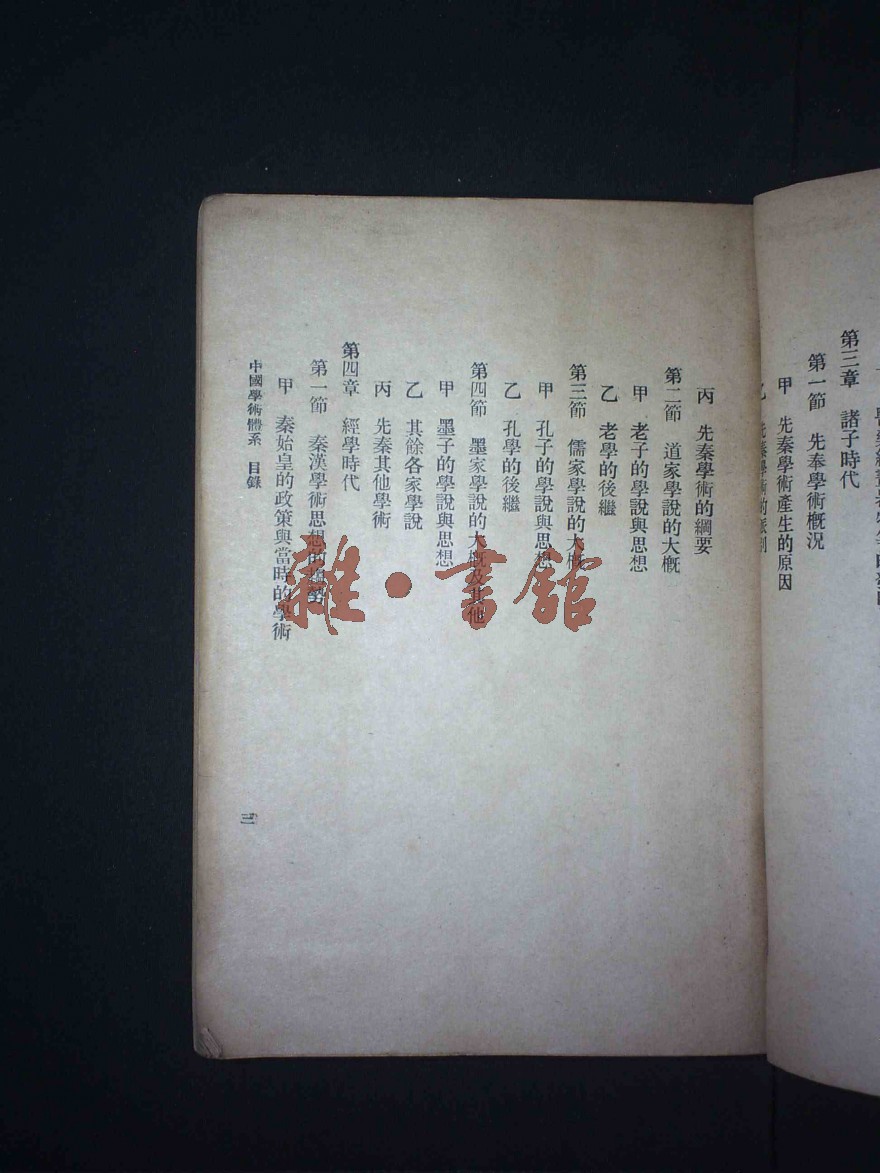 第三章　諸子時代
第一節　先奉學術概況
甲　先秦學術產生的原因
乙　先秦學術的派別
丙　先秦學術的綱要
第二節　道家學說的大概
甲　老子的學說與思想
乙　老學的後繼
第三節　儒家學說的大概
甲　孔子的學說與思想
乙　孔學的後繼
第四節　墨家學說的大概及其他
甲　墨子的學說與思想
乙　其餘各家學說
丙　先秦其他學術
第四章　經學時代
第一節　秦漢學術思想的趨勢
甲　秦始皇的政策與當時的學術
中國學術體系　目錄
三
雜·書館